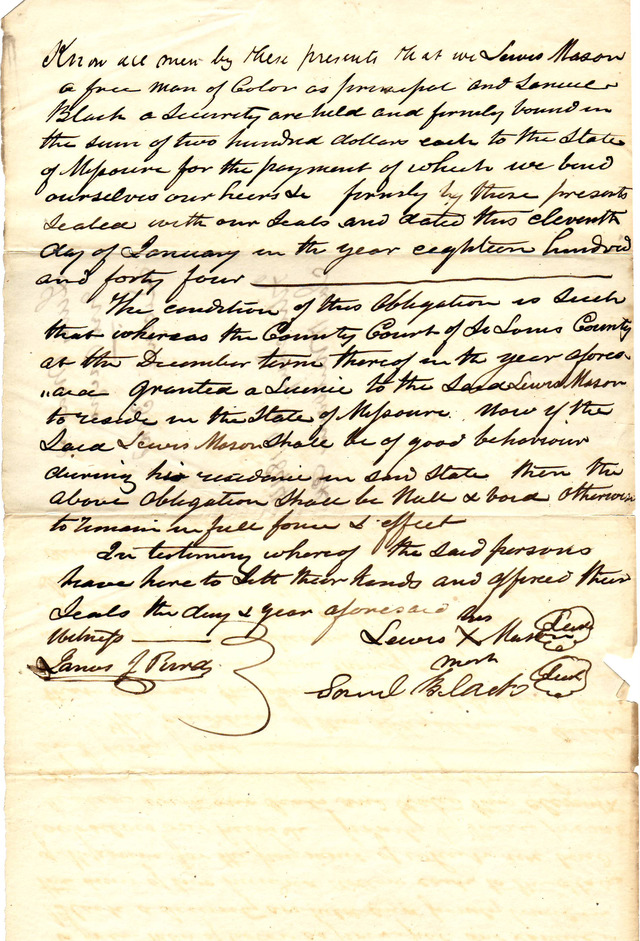 Know all men by these presents that we Lewis Mason
a free man of Color as principal and Samuel
Black a Security are held and firmly bound in
the sum of two hundred dollars each to the State
of Missouri for the payment of which we bind
ourselves our heirs &c firmly by these presents
Sealed with our Seals and dated this eleventh
day of January in the year eighteen hundred
and forty four
The condition of this Obligation is Such
that whereas the County Court of St Louis County
at the December term thereof in the year afore
"said granted a License to the Said Lewis Mason
to reside in the State of Missouri. Now if the
Said Lewis Mason Shall be of good behaviour
during his residence in said State then the
above Obligation Shall be Null & void otherwise
to remain in full force & effect
In testimony whereof the said persons
have here to Sett their hands and affixed their
Seals the day & year aforesaid
Witness
his
Lewis X Mason Seal
mark
James J
Saml Black Seal